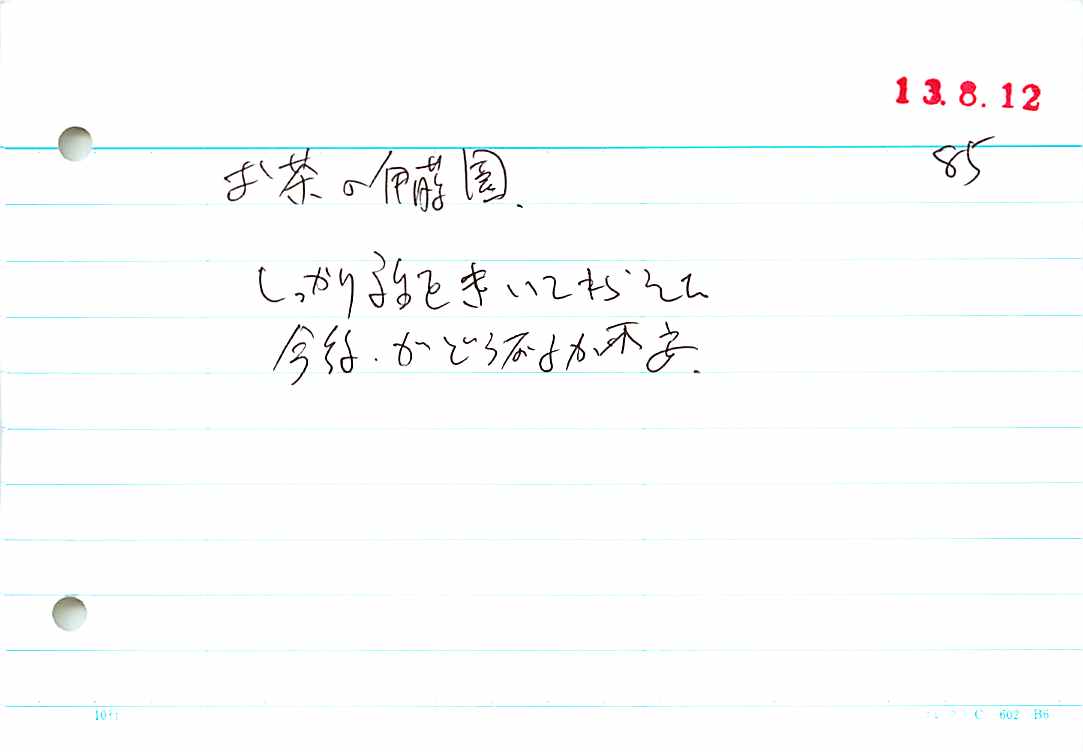 13.8.12
85
お茶の伊藤園.
しっかり話をきいてもらえた
今後.がどうなるか不安.
10行
C 602 B6